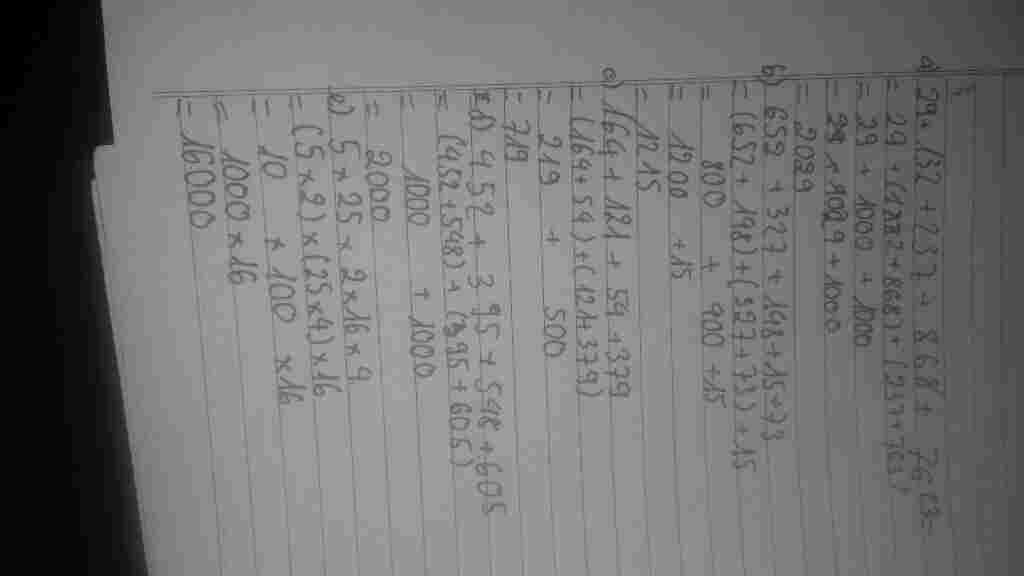 a) 29 + 132 + 237 + 868 + 763
= 29 + (132 + 868) + (237 + 763)
= 29 + 1000 + 1000
= 1029 + 1000
= 2029
b) 652 + 327 + 148 + 15 + 73
= (652 + 148) + (327 + 73) + 15
= 800 + 400 + 15
= 1200 + 15
= 1215
c) 164 + 121 + 54 + 379
= (164 + 54) + (121 + 379)
= 219 + 500
= 719
d) 452 + 395 + 548 + 605
= (452 + 548) + (395 + 605)
= 1000 + 1000
= 2000
e) 5 × 25 × 2 × 16 × 4
= (5 × 2) × (25 × 4) × 16
= 10 × 100 × 16
= 1000 × 16
= 16000